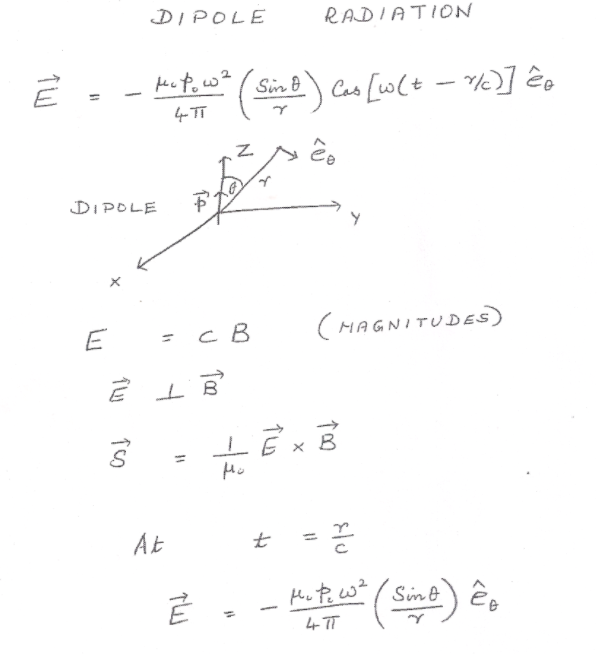 DIPOLE RADIATION
E⃗ = - μ₀p₀ω²/4π (Sinθ/r) Cos[ω(t - r/c)] ê_θ
Z
ê_θ
θ r
DIPOLE p⃗
Y
X
E = cB (MAGNITUDES)
E⃗ ⊥ B⃗
S⃗ = 1/μ₀ E⃗ × B⃗
At t = r/c
E⃗ = - μ₀p₀ω²/4π (Sinθ/r) ê_θ